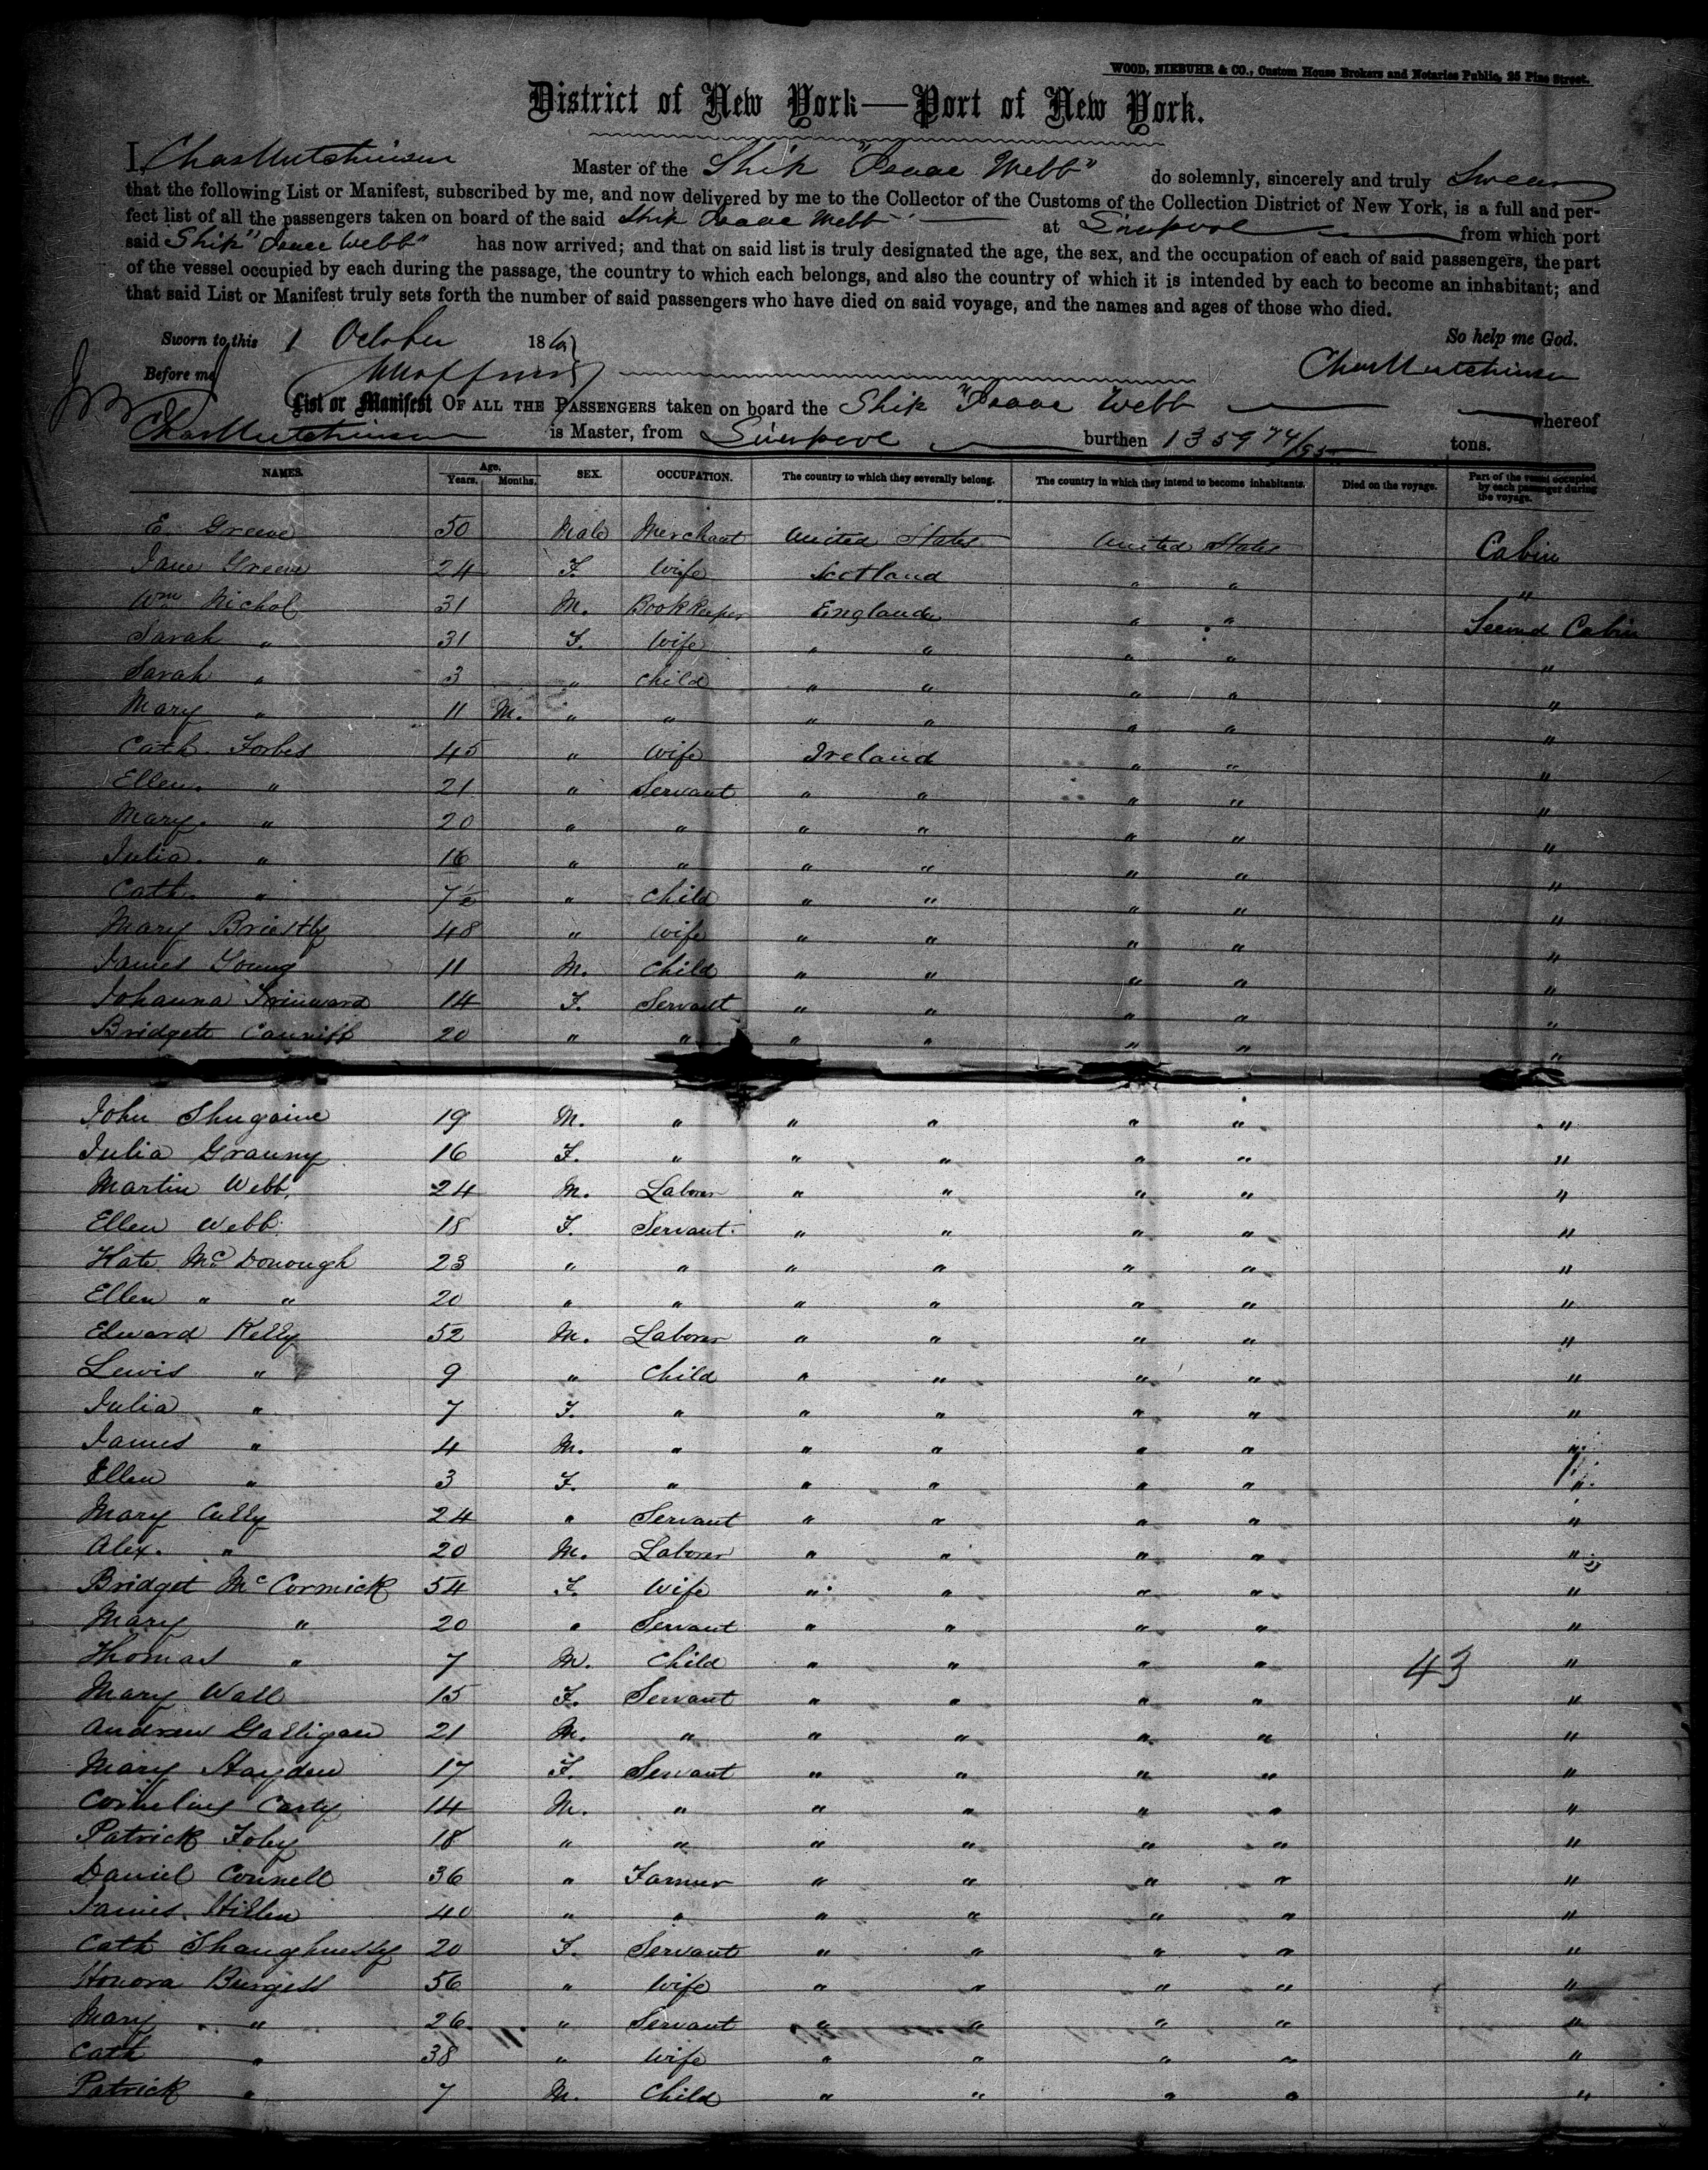 WOOD, NIEBUHR & CO., Custom House Brokers and Notaries Public, 25 Pine Street.
District of New York—Port of New York.
I, Chas Hutchinson Master of the Ship "Isaac Webb" do solemnly, sincerely and truly Swear
that the following List or Manifest, subscribed by me, and now delivered by me to the Collector of the Customs of the Collection District of New York, is a full and per-
fect list of all the passengers taken on board of the said Ship Isaac Webb at Liverpool from which port
said Ship "Isaac Webb" has now arrived; and that on said list is truly designated the age, the sex, and the occupation of each of said passengers, the part
of the vessel occupied by each during the passage, the country to which each belongs, and also the country of which it is intended by each to become an inhabitant; and
that said List or Manifest truly sets forth the number of said passengers who have died on said voyage, and the names and ages of those who died.
Sworn to this 1 October 186 So help me God.
Before me Chas Hutchinson
List or Manifest OF ALL THE PASSENGERS taken on board the Ship "Isaac Webb whereof
Chas Hutchinson is Master, from Liverpool burthen 1359 74/95 tons.
NAMES. Age. Years. Months. SEX. OCCUPATION. The country to which they severally belong. The country in which they intend to become inhabitants. Died on the voyage. Part of the vessel occupied by each passenger during the voyage.
E. Greeve 50 Male Merchant United States United States Cabin
Jane Greeve 24 F. Wife Scotland " " "
Wm Nichol 31 M. Bookkeeper England " " Second Cabin
Sarah " 31 F. Wife " " " " "
Sarah " 3 " Child " " " " "
Mary " 11 M. " " " " " " "
Cath. Forbes 45 " Wife Ireland " " "
Ellen. " 21 " Servant " " " " "
Mary. " 20 " " " " " " "
Julia. " 16 " " " " " " "
Cath. " 7½ " Child " " " " "
Mary Briestly 48 " Wife " " " " "
James Young 11 M. Child " " " " "
Johanna 14 F. Servant " " " " "
Bridgett Cauniff 20 " " " " " " "
John Shugaine 19 M. " " " " " "
Julia Granny 16 F. " " " " " "
Martin Webb. 24 M. Laborer " " " " "
Ellen Webb. 18 F. Servant " " " " "
Kate McDonough 23 " " " " " " "
Ellen " " 20 " " " " " " "
Edward Kelly 52 M. Laborer " " " " "
Lewis " 9 " Child " " " " "
Julia " 7 F. " " " " " "
James " 4 M. " " " " " "
Ellen " 3 F. " " " " " "
Mary Cully 24 " Servant " " " " "
Alex. " 20 M. Laborer " " " " "
Bridget McCormick 54 F. Wife " " " " "
Mary " 20 " Servant " " " " "
Thomas " 7 M. Child " " " " 43 "
Mary Wall 15 F. Servant " " " " "
Andrew Galligan 21 M. " " " " " "
Mary Hayden 17 F. Servant " " " " "
Cornelius Carty 14 M. " " " " " "
Patrick Foby 18 " " " " " " "
Daniel Connell 36 " Farmer " " " " "
James Hillen 40 " " " " " " "
Cath Shaughnessy 20 F. Servant " " " " "
Honora Burgess 56 " Wife " " " " "
Mary " 26 " Servant " " " " "
Cath " 38 " Wife " " " " "
Patrick " 7 M. Child " " " " "